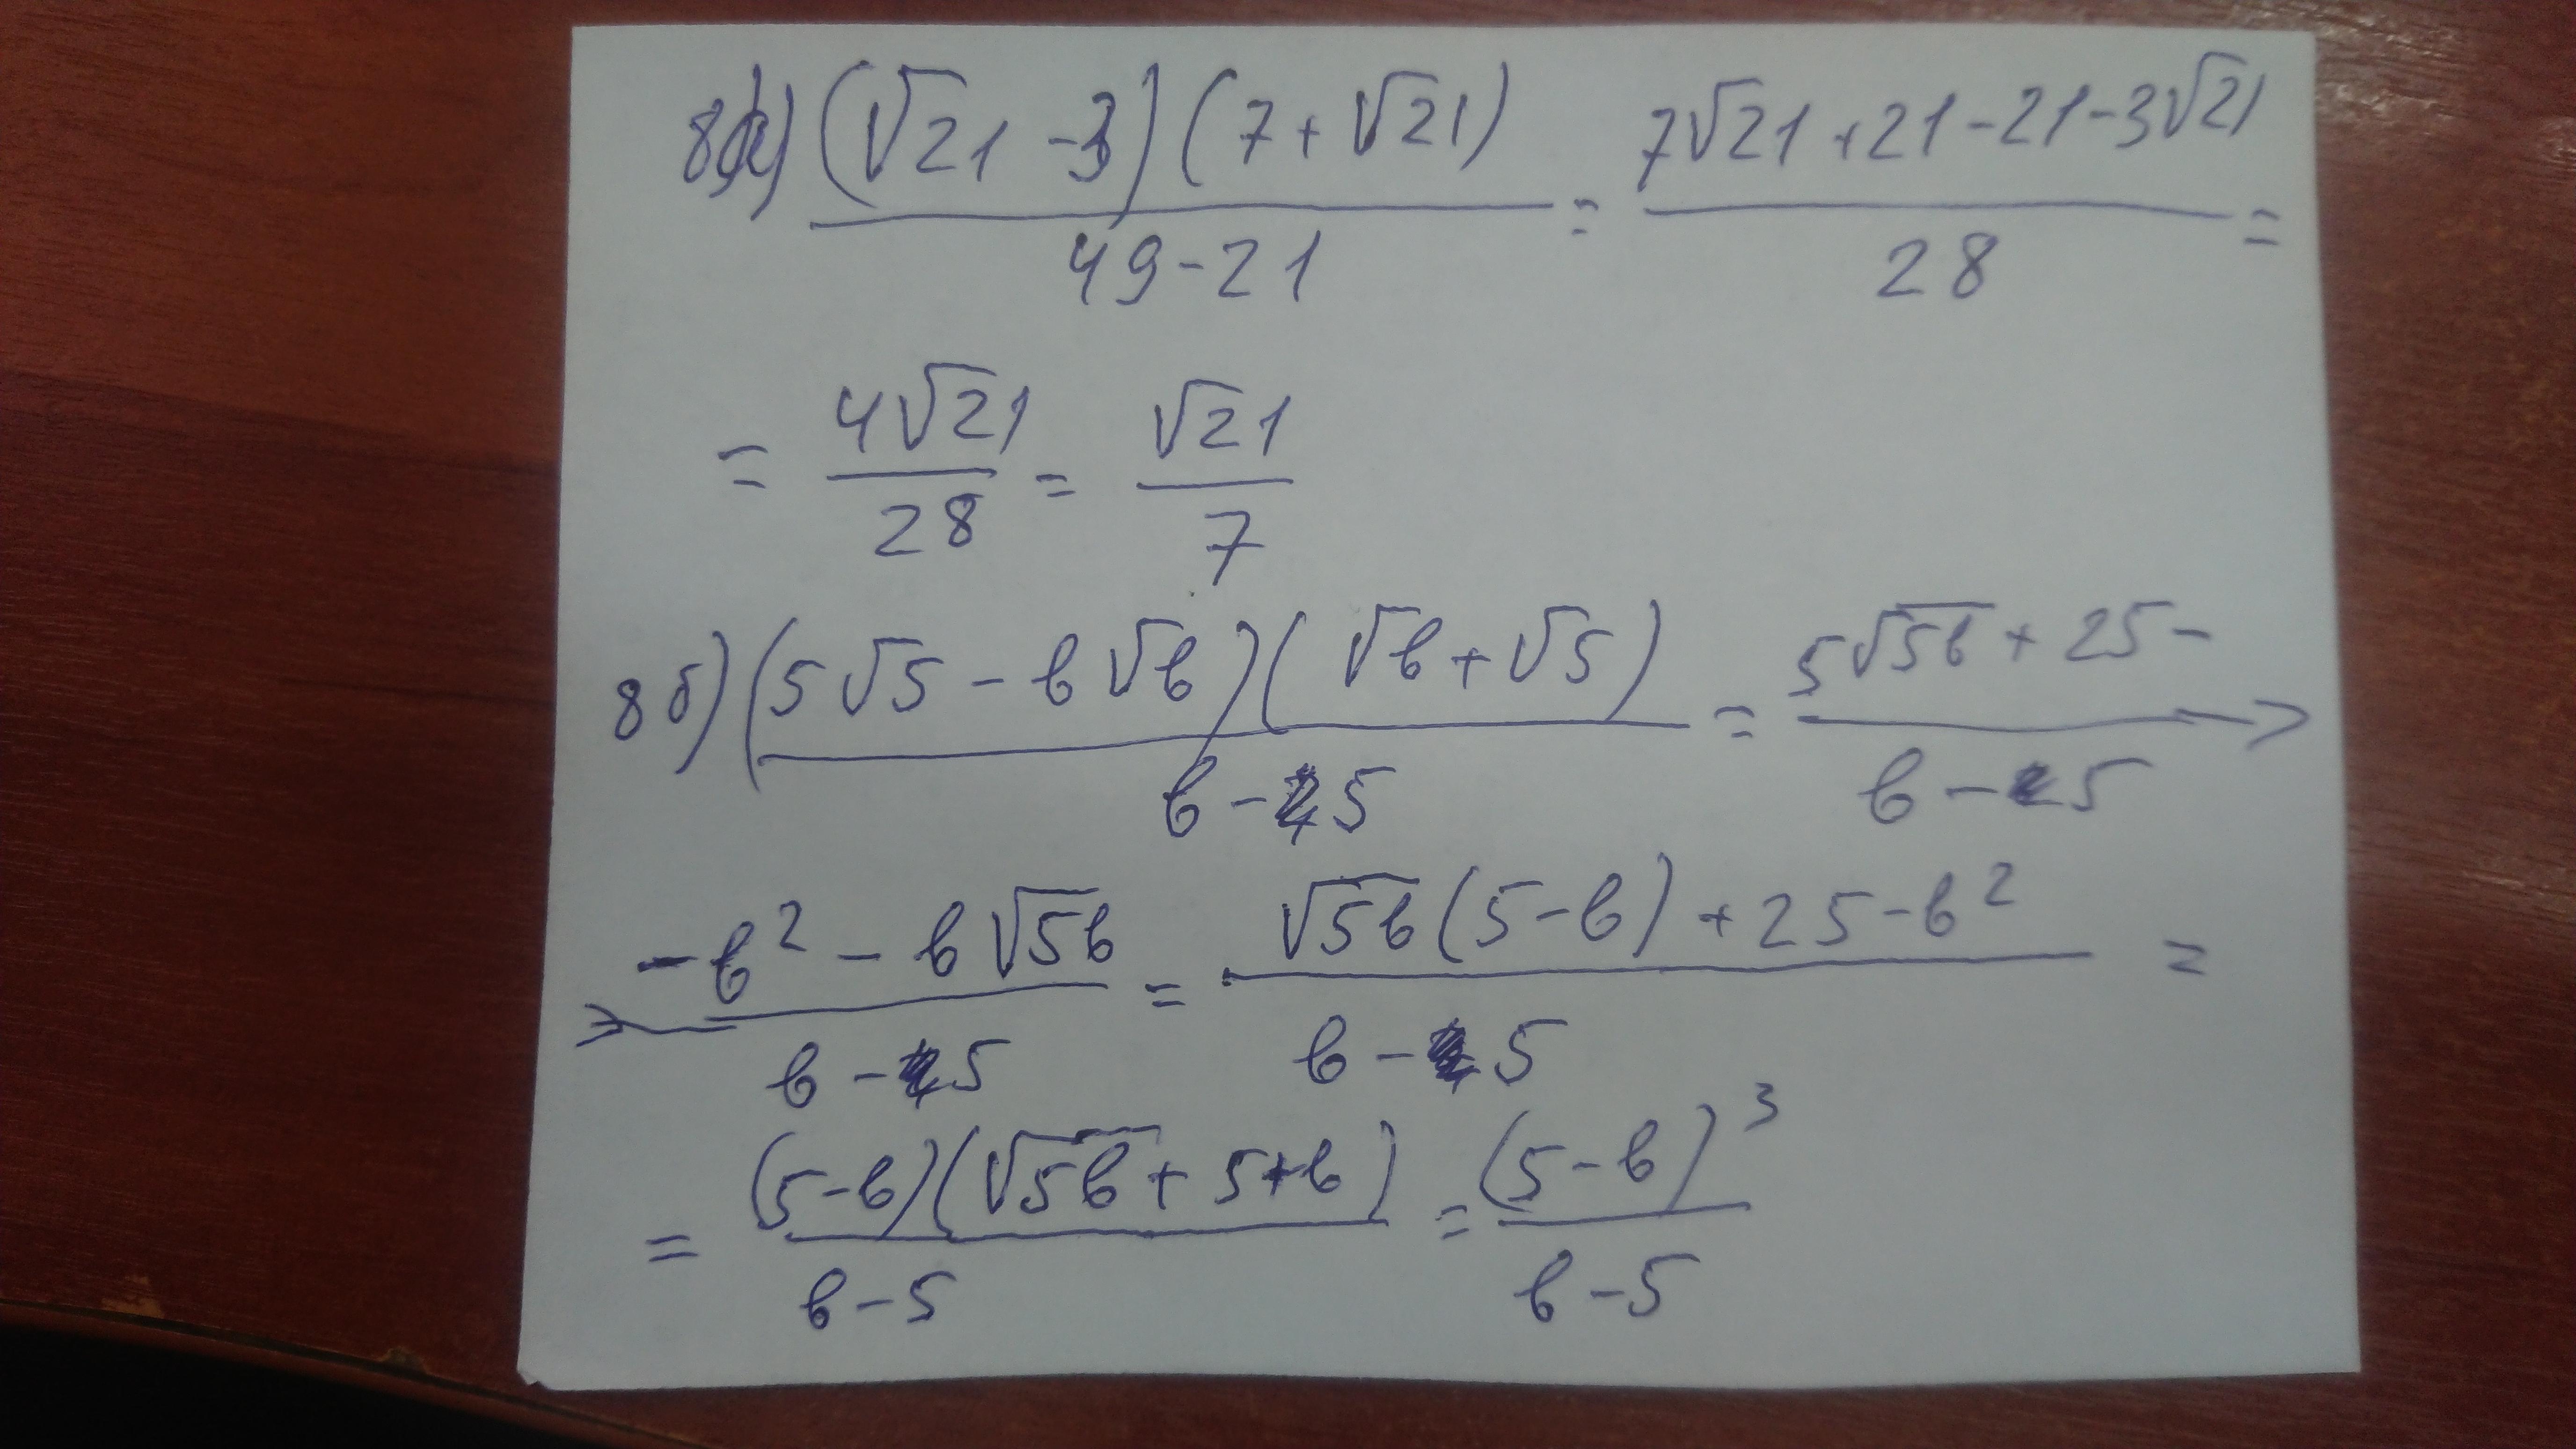 8а) (√21 - 3)(7 + √21) / 49 - 21 = 7√21 + 21 - 21 - 3√21 / 28 =
= 4√21 / 28 = √21 / 7
8б) (5√5 - в√в)(√в + √5) / в - 5 = 5√5в + 25 - / в - 5 →
→ - в² - в√5в / в - 5 = √5в(5 - в) + 25 - в² / в - 5 =
= (5 - в)(√5в + 5 + в) / в - 5 = (5 - в)³ / в - 5